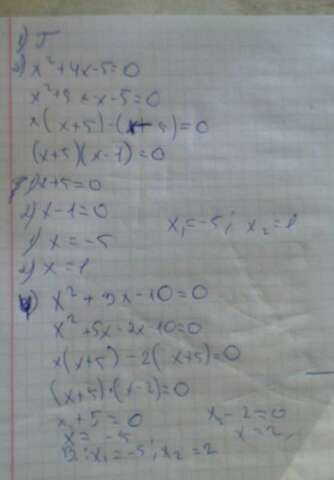 1) 5
2) x² + 4x - 5 = 0
x² + 5x - x - 5 = 0
x(x+5) - (x+5) = 0
(x+5)(x-1) = 0
1) x+5=0
2) x-1=0
1) x = -5
x₁ = -5; x₂ = 1
2) x = 1
4) x² + 3x - 10 = 0
x² + 5x - 2x - 10 = 0
x(x+5) - 2(x+5) = 0
(x+5)·(x-2) = 0
x₁ + 5 = 0 x₂ - 2 = 0
x = -5 x = 2,
В: x₁ = -5; x₂ = 2